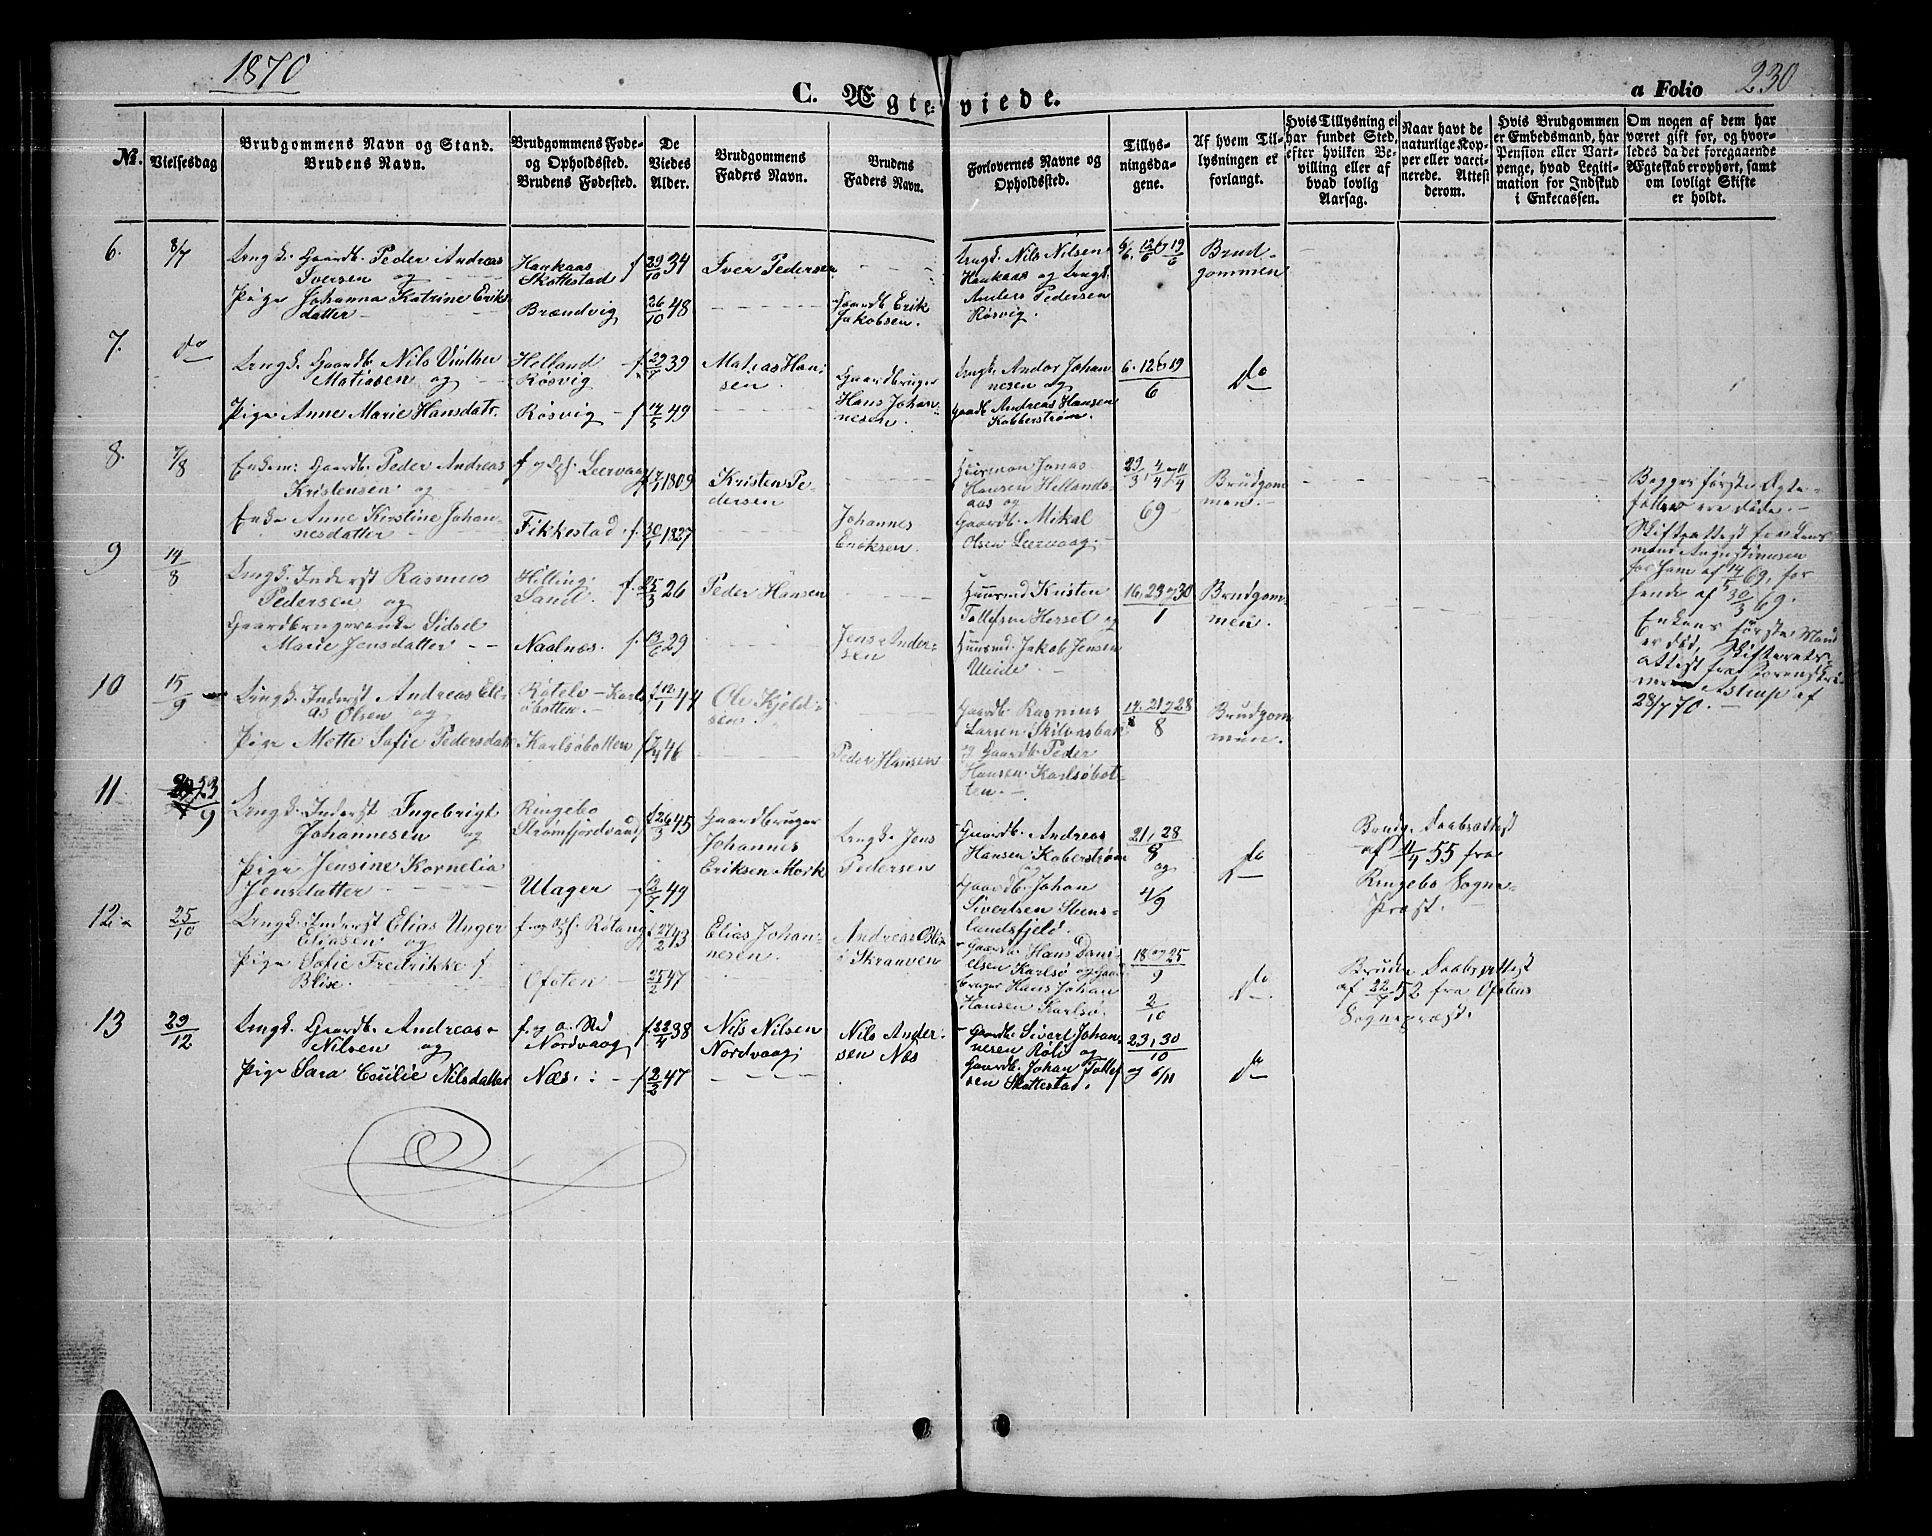 1870
230
C. Ægteviede.
a Folio
No.
Vielsesdag
Brudgommens Navn og Stand.
Brudens Navn.
Brudgommens Føde-
og Opholdssted.
Brudens Fødested.
De
Viedes
Alder.
Brudgommens
Faders Navn.
Brudens
Faders Navn.
Forlovernes Navne og
Opholdssted.
Tillys-
ningsda-
gene.
Af hvem Til-
lysningen er
forlangt.
Hvis Tillysning ei
har fundet Sted,
efter hvilken Be-
villing eller af
hvad lovlig
Aarsag.
Naar havt de
naturlige Kop-
per eller vacci-
nerede. Attest
derom.
Hvis Brudgommen
er Embedsmand, har
Pension eller Vart-
penge, hvad Legiti-
mation for Indskud
i Enkecassen.
Om nogen af dem har
været gift før, og hvor-
ledes da det foregaaende
Ægteskab er ophørt, samt
om lovligt Skifte
er holdt.
6.
8/7
Ungk. Gaardb. Peder Andreas
Iversen og
Pige Johanna Katrine Eriks
datter
Haukaas
Skottestad
Brændvig
f 29/10 34
26/10 48
Iver Pedersen
Gaardb. Erik
Jakobsen.
Ungk. Nils Nilsen
Haukaas og Ungk.
Anders Pedersen
Røsvig
5/6. 12/6 19/6
Brud-
gommen
7.
do
Ungk. Gaardb. Nils Vinther
Matiasen og
Pige Anne Marie Hansdatr.
Helland
Røsvig
Røsvig
f. 29/7 39
f 14/5 49
Matias Han-
sen.
Gaardbruger
Hans Johan-
nesen
Ungk. Andor Johan
nesen og
Gaardb. Andreas Hansen
Kobberstrøm.
6. 12 & 19
6
do
8.
7/8
Enkem: Gaardb. Peder Andreas
Kristensen og
Enke Anne Kirstine Johan-
nesdatter
f og Opf. Leervaag
Fikkestad
1809
f. 30/1 1827
Kristen Pe-
dersen
Johannes
Eriksen.
Huusmand Jonas
Hansen Hellands-
aas og
Gaardb. Mikal
Olsen Leervaag
29/3, 4/4 og 11/4
69
Brudgom
men.
Begges første Ægte-
fæller ere døde.
Skifteattest fra
for ham af 14/5 69, for
hende af 30/3 69.
9
14/8
Ungk. Inderst Rasmus
Pedersen og
Gaardbrugerenke Sidsel
Marie Jensdatter
Hilling-
Sand.
Naalnæs.
f. 25/3 26
f. 13/6 29
Peder Hansen
Jens Ander-
sen
Huusmd Kristen
Tollefsen Hersel og
Huusmd. Jakob Jensen
16, 23 og 30
1
Brudgom-
men.
Enkens første Mand
er død, Skifterets
Attest fra Sorenskri-
ver Astrup af
28/7 70.
10
15/9
Ungk. Inderst Andreas Eli-
as Olsen og
Pige Mette Sofie Pedersdatr.
Røtelv Karls-
øbotten.
Karlsøbotten
f 12/1 44
f 7/4 46
Ole Kjeld-
sen.
Peder Hansen
Gaardb Rasmus
Larsen Skilvasbak
og Gaardb. Peder
Hansen Karlsøbot-
ten.
14. 21 og 28
8
Brudgom
men.
11
23/9
Ungk. Inderst Ingebrigt
Johannesen og
Pige Jensine Kornelia
Jensdatter
Ringebo
Strømfjordvand
Ulager
f 26/3 45
f 12/7 49
Gaardbruger
Johannes
Eriksen Mork
Ungk. Jens
Pedersen
Gaardb. Andreas
Hansen Koberstrøm
og
Gaardb. Johan
Sivertsen Steens-
landsfjeld.
21, 28
8
og
4/9
do
Brudg. Daabsattest
af 11/4 55 fra
Ringebo Sogne-
Præst.
12.
25/10
Ungk. Inderst Elias Unger
Eliasen og
Pige Sofie Fredrikke
Blise.
f. og Opf. Røtang
Ofoten
f 27/2 43
25/2 47
Elias Johan-
nesen.
Andreas Blix
i Skraaven
Gaardb. Hans Dani-
elsen Karlsø og Gaard
bruger Hans Johan
Hansen Karlsø.
18 og 25
9
2/10
do
Bruden Daabsattest
af 22/7 52 fra Ofotens
Sognepræst.
13
29/12
Ungk. Gaardb. Andreas
Nilsen og
Pige Sara Cecilie Nilsdatter
f. og o. Sted
Nordvaag
Næs.
f 22/4 38
f 2/2 47
Nils Nilsen
Nordvaag
Nils Ander-
sen Næs
Gaardb. Sivert Johan-
nesen Røli og
Gaardb. Johan Tollef
sen Skottestad.
23, 30
10
og 6/11
do